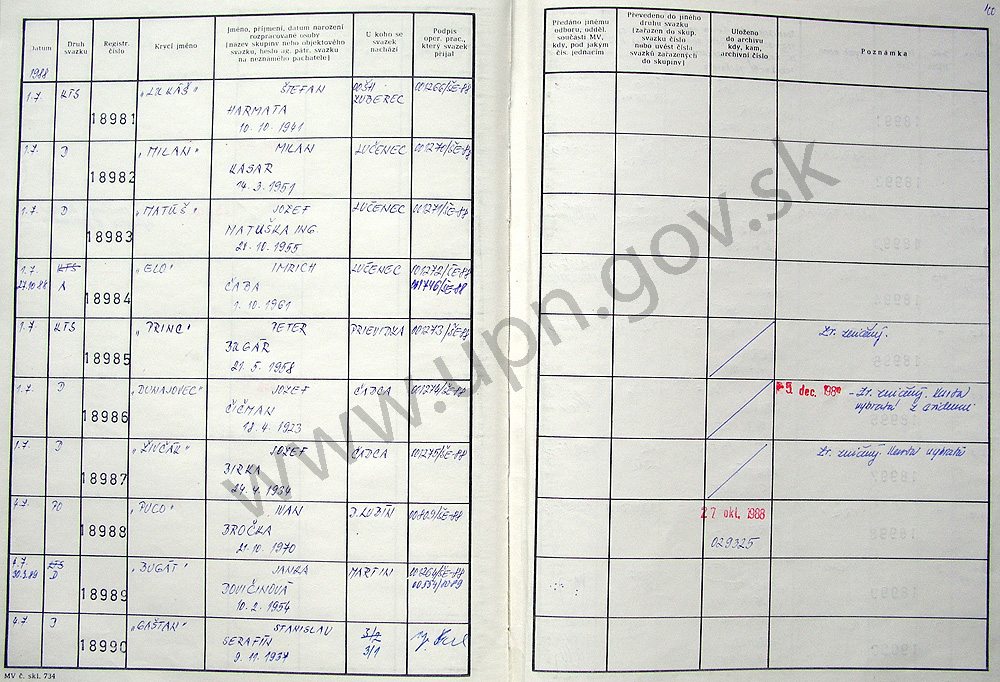 100
Datum
Druh svazku
Registr. číslo
Krycí jméno
Jméno, příjmení, datum narození
rozpracované osoby
[název skupiny nebo objektového
svazku, heslo ag. pátr. svazku
na neznámého pachatele]
U koho se
svazek
nachází
Podpis
oper. prac.,
který svazek
přijal
Předáno jinému
odboru, odděl.
součásti MV,
kdy, pod jakým
čís. jednacím
Převedeno do jiného
druhu svazku
[zařazen do skup.
svazku číslo
nebo uvést čísla
svazků zařazených
do skupiny]
Uloženo
do archivu
kdy, kam,
archivní číslo
Poznámka
1988
1.7. KTS 18981 „LUKÁŠ" ŠTEFAN OOŠH 001266/ŠE-88
HARMATA ZUBEREC
10. 10. 1941
1.7. D 18982 „MILAN" MILAN LUČENEC 001270/ŠE-88
KASAR
14. 3. 1951
1.7. D 18983 „MATÚŠ" JOZEF LUČENEC 001271/ŠE-88
MATUŠKA ING.
21. 10. 1955
1.7. KTS 18984 „ELO" IMRICH LUČENEC 001272/ŠE-88
27.10.88 A ČABA 001746/ŠE-88
1. 10. 1961
1.7. KTS 18985 „PRINC" PETER PRIEVIDZA 001273/ŠE-88 Zv. zničený.
BULGÁR
21. 5. 1958
1.7. D 18986 „DUNAJOVEC" JOZEF ČADCA 001274/ŠE-88 5. dec. 1989 - Zv. zničený. Karta
ČIČMAN vybratá z evidencie
18. 4. 1923
1.7. D 18987 „ŽIVČÁK" JOZEF ČADCA 001275/ŠE-88 Zv. zničený. Karta vybratá
BIRKA
24. 4. 1934
4.7. PO 18988 „PUCO" IVAN D. KUBÍN 00809/ŠE-88 27 okt. 1988
BROČKA 029325
21. 10. 1970
4.7. KTS 18989 „BUGÁT" JANKA MARTIN 001264/ŠE-88
D BOVIČINOVÁ
10. 2. 1954
4.7. D 18990 „GAŠTAN" STANISLAV
SERAFÍN
9. 11. 1937
MV č. skl. 734
www.upn.gov.sk